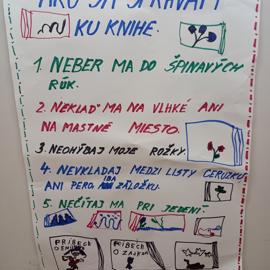 AKO SA SPRÁVAM
KU KNIHE.
1. NEBER MA DO ŠPINAVÝCH
RÚK.
2. NEKLAĎ MA NA VLHKÉ ANI
NA MASTNÉ MIESTO.
3. NEOHÝBAJ MOJE ROŽKY.
4. NEVKLADAJ MEDZI LISTY CERUZKU
ANI PERO, IBA ZÁLOŽKU.
5. NEČÍTAJ MA PRI JEDENÍ.
PRÍBEH
PRÍBEH
O